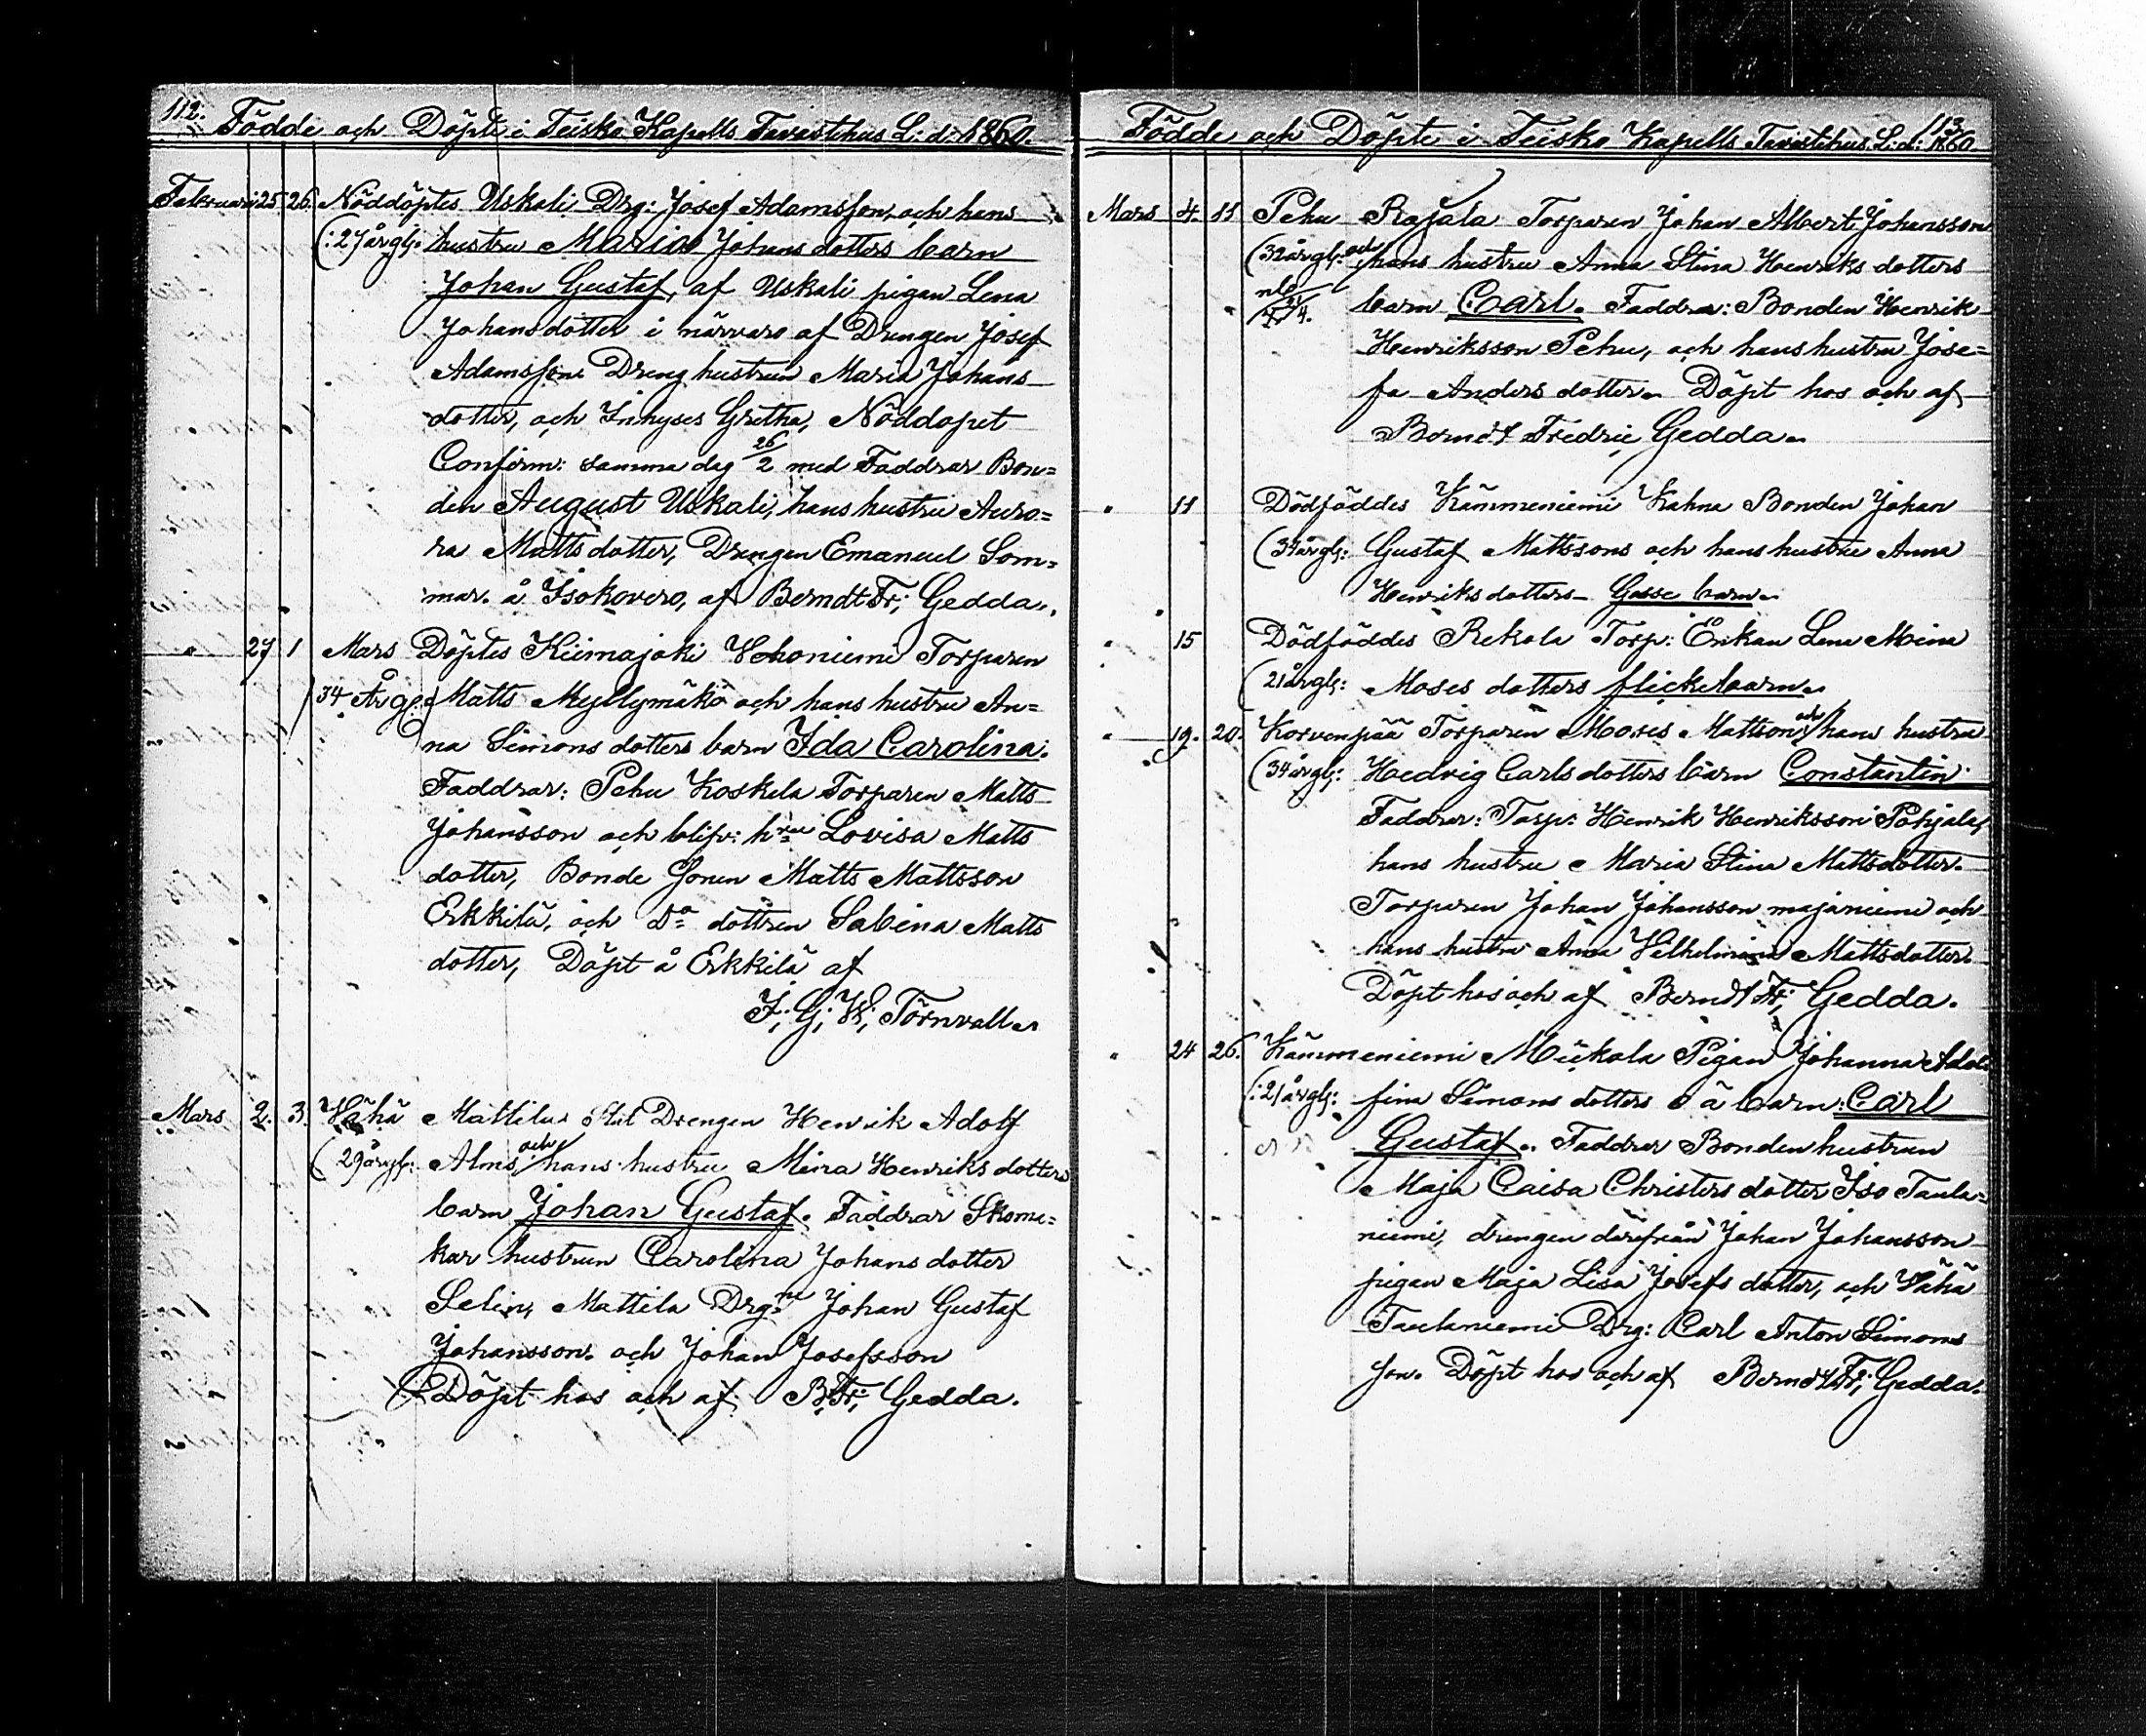 112. Födde och Döpte i Teisko Kapells Tavastehus L: d: 1860.
Februari 25 26. Nöddöptes Uskali Drg: Josef Adamsson, och hans
(:27 årgl: hustru Maria Johans dotters barn
Johan Gustaf, af Uskali pigan Lena
Johans dotter i närvaro af Drengen Josef
Adamsson Dreng hustrun Maria Johans
dotter, och Inhyses Gretha, Nöddopet
Confirm: samma dag 26/2 med Faddrar Bon=
den August Uskali, hans hustru Auro=
ra Matts dotter, Drengen Emanuel Som=
mar. å Isokovero, af Berndt Fr; Gedda.
" 27 1 Mars Döptes Kiimajoki Torparen
(34 År gl: Matts Myllymäki och hans hustru An=
na Simons dotters barn Ida Carolina.
Faddrar: Pehu Koskela Torparen Matts
Johansson och blifv: hru Lovisa Matts
dotter, Bonde Sonen Matts Mattsson
Erkkilä, och Do dottren Sabina Matts
dotter, Döpt å Erkkilä af
F; G; W; Törnvall.
Mars 2. 3. Wähä Mattila Stat Drengen Henrik Adolf
(29 årgl: Alms och hans hustru Mina Henriks dotters
barn Johan Gustaf. Faddrar Skoma=
kar hustrun Carolina Johans dotter
Selin, Mattila Drg:ne Johan Gustaf
Johansson och Johan Josefsson
Döpt hos och af B: Fr; Gedda.
113.
Födde och Döpte i Teisko Kapells Tavastehus L: d: 1860.
Mars 4. 11 Pehu Rajala Torparen Johan Albert Johansson
(32 årgl: och hans hustru Anna Stina Henriks dotters
barn Carl. Faddrar: Bonden Henrik
Henriksson Pehu, och hans hustru Jose=
fa Anders dotter. Döpt hos och af
Berndt Fredric Gedda.
" 11 Dödföddes Kämmeniemi Kahna Bonden Johan
(34 årgl: Gustaf Mattssons och hans hustru Anna
Henriks dotters Gosse barn.
" 15 Dödföddes Rekola Torp: Enkan Lena Mina
(21 årgl: Moses dotters flickebarn.
" 19. 20. Korvenpää Torparen Moses Mattson och hans hustru
(34 årgl: Hedvig Carls dotters barn Constantin.
Faddrar: Torp: Henrik Henriksson Pohjala,
hans hustru Maria Stina Mattsdotter.
Torparen Johan Johansson majaniemi och
hans hustru Anna Vilhelmina Mattsdotter.
Döpt hos och af Berndt Fr; Gedda.
" 24 26. Kämmeniemi Mickola Pigan Johanna Adol
(:21 årgl: fina Simons dotters o ä barn: Carl
Gustaf. Faddrar Bonden hustrun
Maja Caisa Christers dotter Iso Taula=
niemi, drengen derifrån Johan Johansson
pigan Maja Lisa Josefs dotter, och Wähä
Taulaniemi Drg: Carl Anton Simons
son. Döpt hos och af Berndt Fr; Gedda.